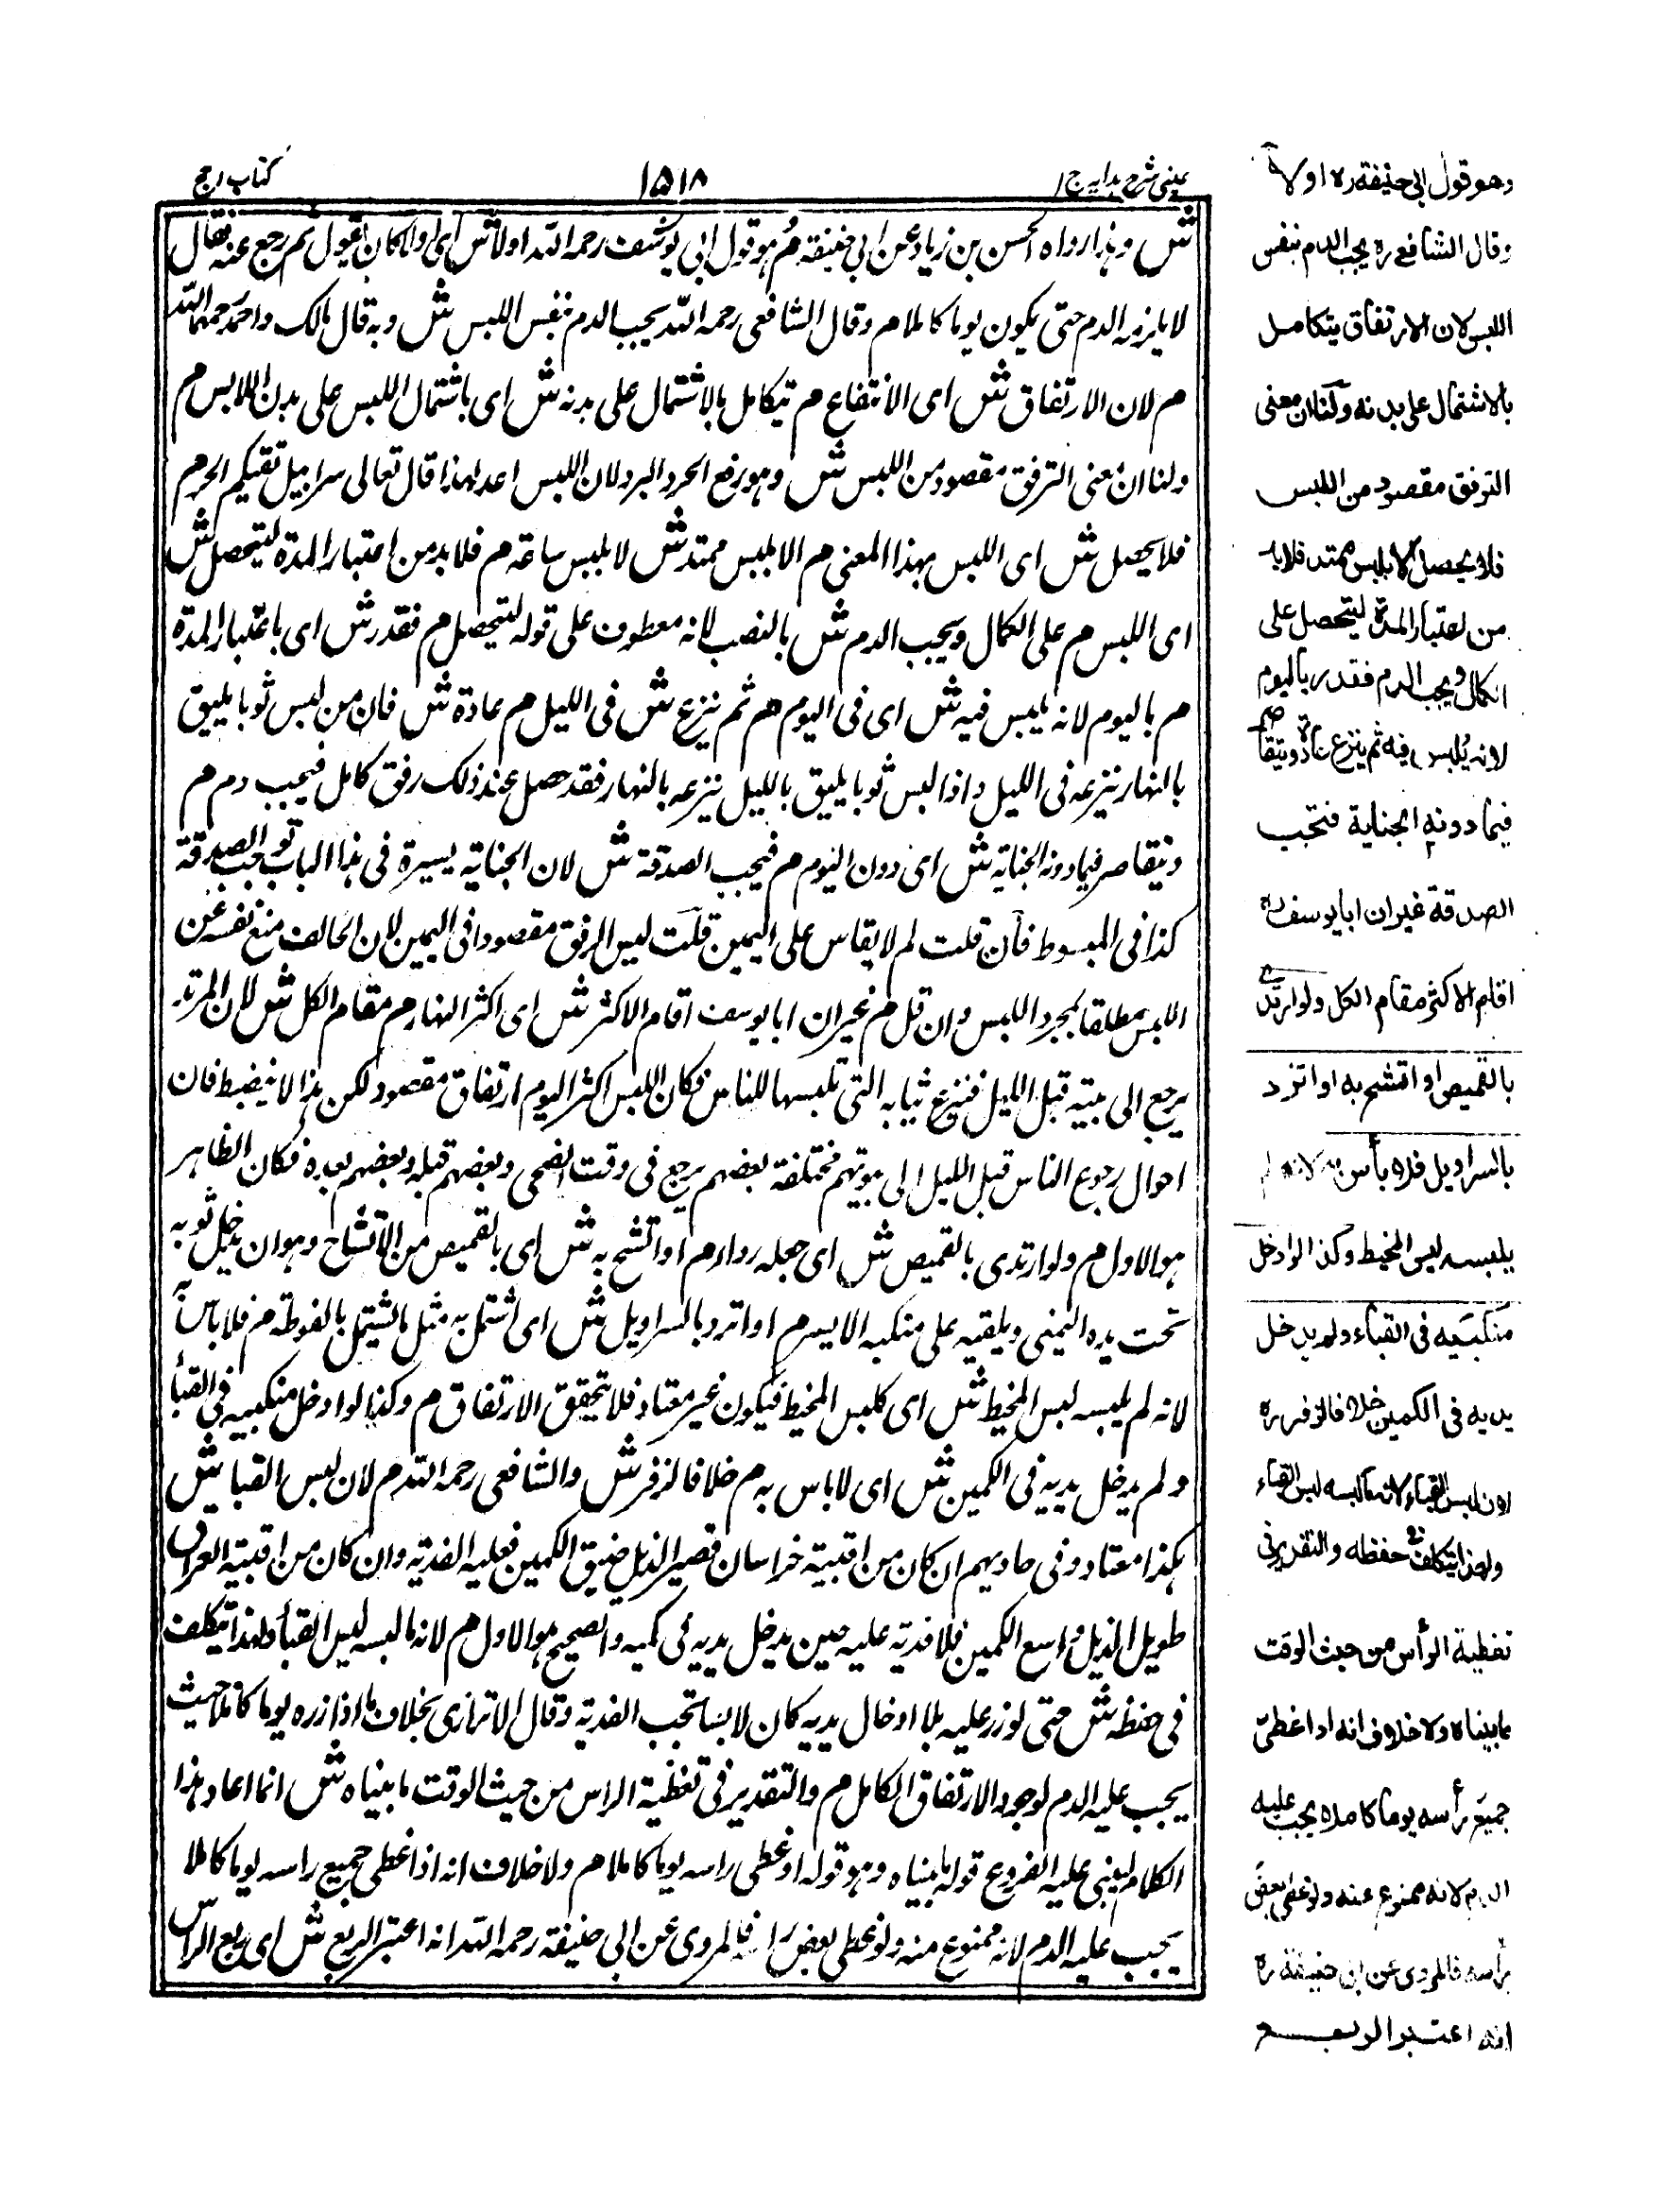 عینی شرح ہدایہ ج ۱
۱۵۱۸
کتاب الحج
ش وہذا رواہ الحسن بن زیاد عن ابی حنیفۃ م وہو قول ابی یوسف رحمہ اللہ اولا ش ای اولا کان یقول ثم رجع عنہ فقال
لا یلزمہ الدم حتی یکون یوما کاملا م وقال الشافعی رحمہ اللہ یجب الدم بنفس اللبس ش وبہ قال مالک واحمد رحمہما اللہ
م لان الارتفاق ش ای الانتفاع م یتکامل بالاشتمال علی بدنہ ش ای باشتمال اللبس علی بدن اللابس م
ولنا ان معنی الترفق مقصود من اللبس ش وہو رفع الحر والبرد لان اللبس اعد لہذا قال تعالی سرابیل تقیکم الحر م
فلا یحصل ش ای اللبس بہذا المعنی م الا بلبس ممتد ش لا بلبس ساعۃ م فلا بد من اعتبار المدۃ لیتحصل ش
ای اللبس م علی الکمال ویجب الدم ش بالنصب لانہ معطوف علی قولہ لیتحصل م فقدر ش ای باعتبار المدۃ
م بالیوم لانہ یلبس فیہ ش ای فی الیوم م ثم ینزع ش فی اللیل م عادۃ ش فان من لبس ثوبا یلیق
بالنہار ینزعہ فی اللیل واذا لبس ثوبا یلیق باللیل ینزعہ بالنہار فقد حصل عند ذلک رفق کامل فیجب دم م
ویتقاصر فیما دونہ الجنایۃ ش ای دون الیوم م فیجب الصدقۃ ش لان الجنایۃ یسیرۃ فی ہذا الباب توجب الصدقۃ
کذا فی المبسوط فان قلت لم لا یقاس علی الیمین قلت لیس الرفق مقصودا فی الیمین لان الحالف منع نفسہ عن
اللبس مطلقا بمجرد اللبس وان قل م غیر ان ابا یوسف اقام الاکثر ش ای اکثر النہار م مقام الکل ش لان المرتد
یرجع الی بیتہ قبل اللیل فینزع ثیابہ التی تلبسہا للناس فکان اللبس اکثر الیوم ارتفاق مقصود لکن ہذا لا ینضبط فان
احوال رجوع الناس قبل اللیل الی بیوتہم مختلفۃ بعضہم یرجع فی وقت الضحی وبعضہم قبلہ وبعضہم بعدہ فکان الظاہر
ہو الاول م ولو ارتدی بالقمیص ش ای جعلہ رداء م او اتشح بہ ش ای بالقمیص من الاتشاح وہو ان یدخل ثوبہ
تحت یدہ الیمنی ویلقیہ علی منکبہ الایسر م او اتزر بالسراویل ش ای اشتمل بہ مثل ما یشتمل بالفوطۃ م فلا باس بہ
لانہ لم یلبسہ لبس المخیط ش ای کلبس المخیط فیکون غیر معتاد فلا یتحقق الارتفاق م وکذا لو ادخل منکبیہ فی القبأ
ولم یدخل یدیہ فی الکمین ش ای لا باس بہ م خلافا لزفر ش والشافعی رحمہ اللہ م لان لبس القبا ش
ہکذا معتاد وفی حاویہم ان کان من اقبیۃ خراسان قصیر الذیل ضیق الکمین فعلیہ الفدیۃ وان کان من اقبیۃ العراق
طویل الذیل واسع الکمین فلا فدیۃ علیہ حین یدخل یدیہ فی کمیہ والصحیح ہو الاول م لانہ ما لبسہ لبس القبأ ولہذا یتکلف
فی حفظہ ش حتی لو زر علیہ بلا ادخال یدیہ کان لابسا تجب الفدیۃ وقال الاترازی بخلاف ما اذا زرہ یوما کاملا حیث
یجب علیہ الدم لوجود الارتفاق الکامل م والتقدیر فی تغطیۃ الراس من حیث الوقت ما بیناہ ش انما اعاد ہذا
الکلام لیبنی علیہ الفروع قولہ ما بیناہ وہو قولہ او غطی راسہ یوما کاملا م ولا خلاف انہ اذا غطی جمیع راسہ یوما کاملا
یجب علیہ الدم لانہ ممنوع منہ ولو غطی بعض راسہ فالمروی عن ابی حنیفۃ رحمہ اللہ انہ اعتبر الربع ش ای ربع الراس
وهو قول ابی حنیفة رہ اولا
وقال الشافعی رہ یجب الدم بنفس
اللبس لان الارتفاق یتکامل
بالاشتمال علی بدنه ولنا ان معنی
الترفق مقصود من اللبس
فلا یحصل الا بلبس ممتد فلا بد
من اعتبار المدة لیتحصل علی
الکمال ویجب الدم فقدر بالیوم
لانه یُلبس فیه ثم ینزع عادة ویتقاصر
فیما دونه الجنایة فتجب
الصدقة غیر ان ابا یوسف رہ
اقام الاکثر مقام الکل ولو ارتدی
بالقمیص او اتشح به او اتزر
بالسراویل فلا بأس به لانه لم
یلبسه لبس المخیط وکذا لو ادخل
منکبیه فی القباء ولم یدخل
یدیه فی الکمین خلافا لزفر رہ
لان لبس القباء لانه ما لبسه لبس القباء
ولهذا یتکلف فی حفظه والتقدیر فی
تغطیة الرأس من حیث الوقت
ما بیناه ولا خلاف انه اذا غطی
جمیع رأسه یوما کاملا یجب علیه
الدم لانه ممنوع عنه ولو غطی بعض
رأسه فالمروی عن ابی حنیفة رہ
انه اعتبر الربع